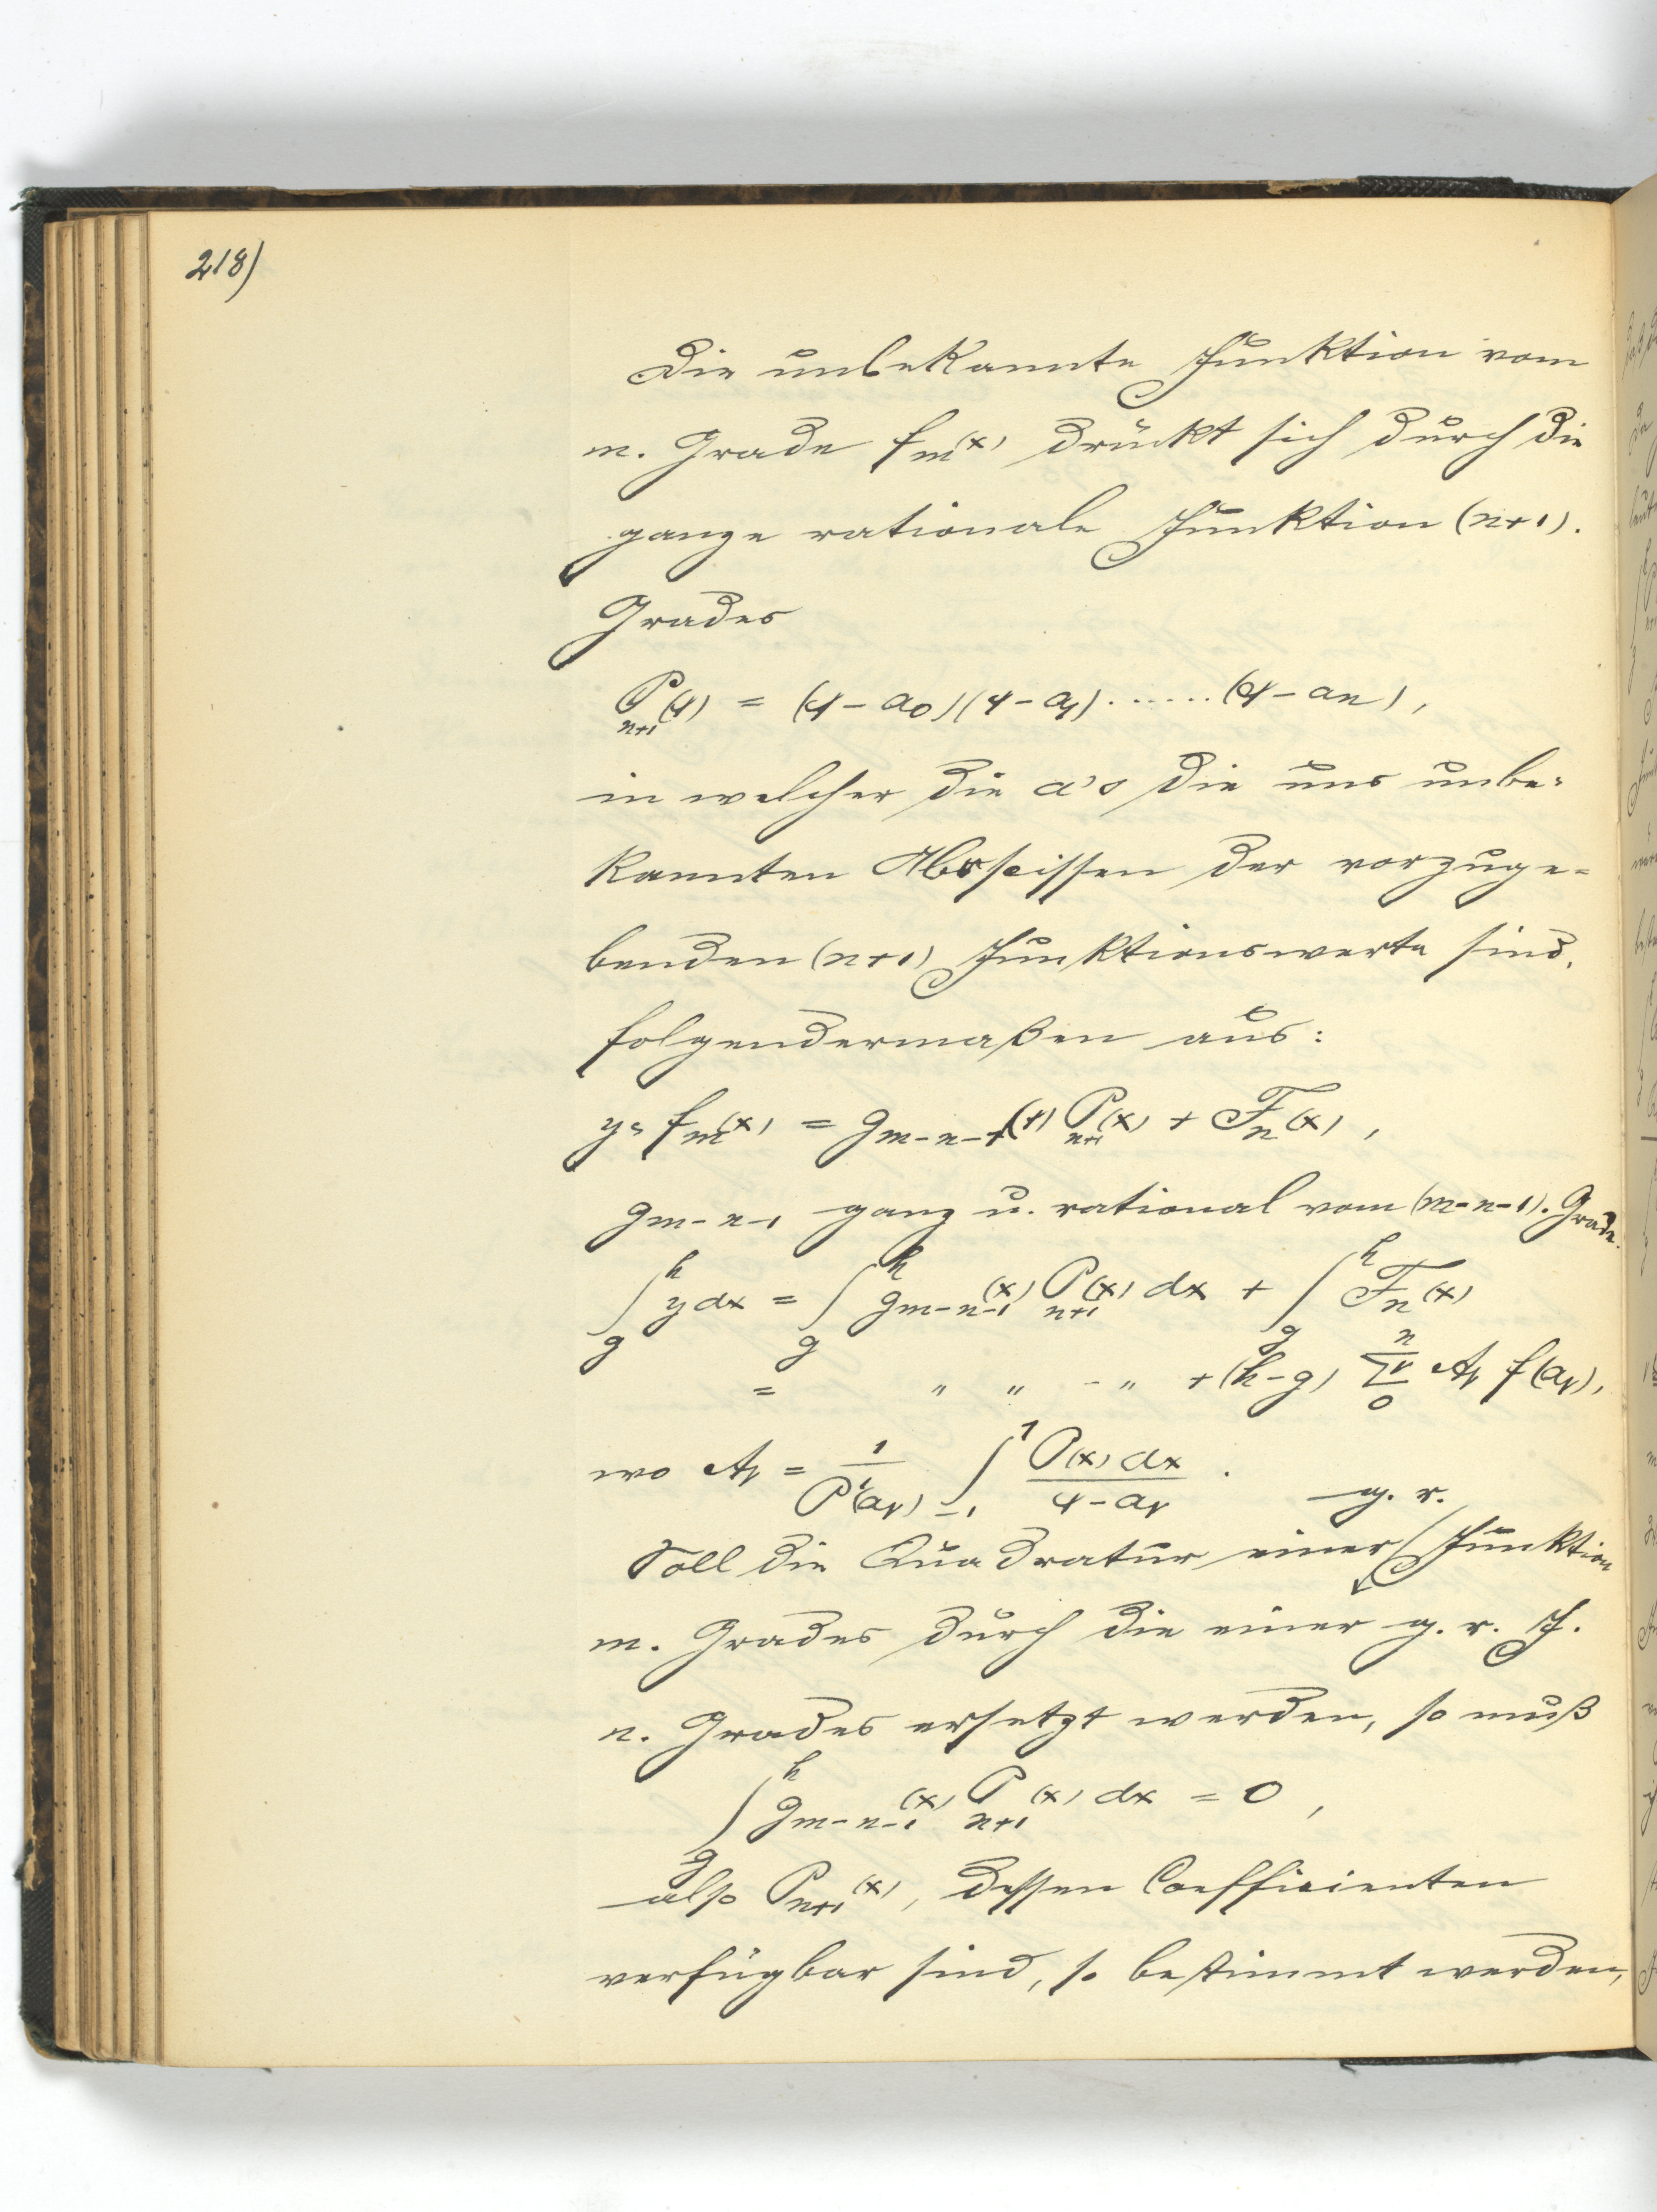 218)
Die unbekannte Funktion vom
m. Grade f_m(x) drückt sich durch die
ganze rationale Funktion (n+1).
Grades
P_{n+1}(x) = (x-a_0)(x-a_1)......(x-a_n),
in welcher die a's die uns unbe-
kannten Abscissen der vorzuge-
benden (n+1) Funktionswerte sind,
folgendermaßen aus:
y = f_m(x) = g_{m-n-1}(x) P_{n+1}(x) + F_n(x),
g_{m-n-1} ganz u. rational vom (m-n-1). Grade.
∫_g^h y dx = ∫_g^h g_{m-n-1}(x) P_{n+1}(x) dx + ∫_g^h F_n(x)
= " " - " + (h-g) Σ_0^n ν A_ν f(a_ν),
wo A_ν = 1/P'(a_ν) ∫_{-1}^1 P(x) dx / x-a_ν .
g. r.
Soll die Quadratur einer Funktion
m. Grades durch die einer g. r. F.
n. Grades ersetzt werden, so muß
∫_g^h g_{m-n-1}(x) P_{n+1}(x) dx = 0,
also P_{n+1}(x), dessen Coefficienten
verfügbar sind, so bestimmt werden,